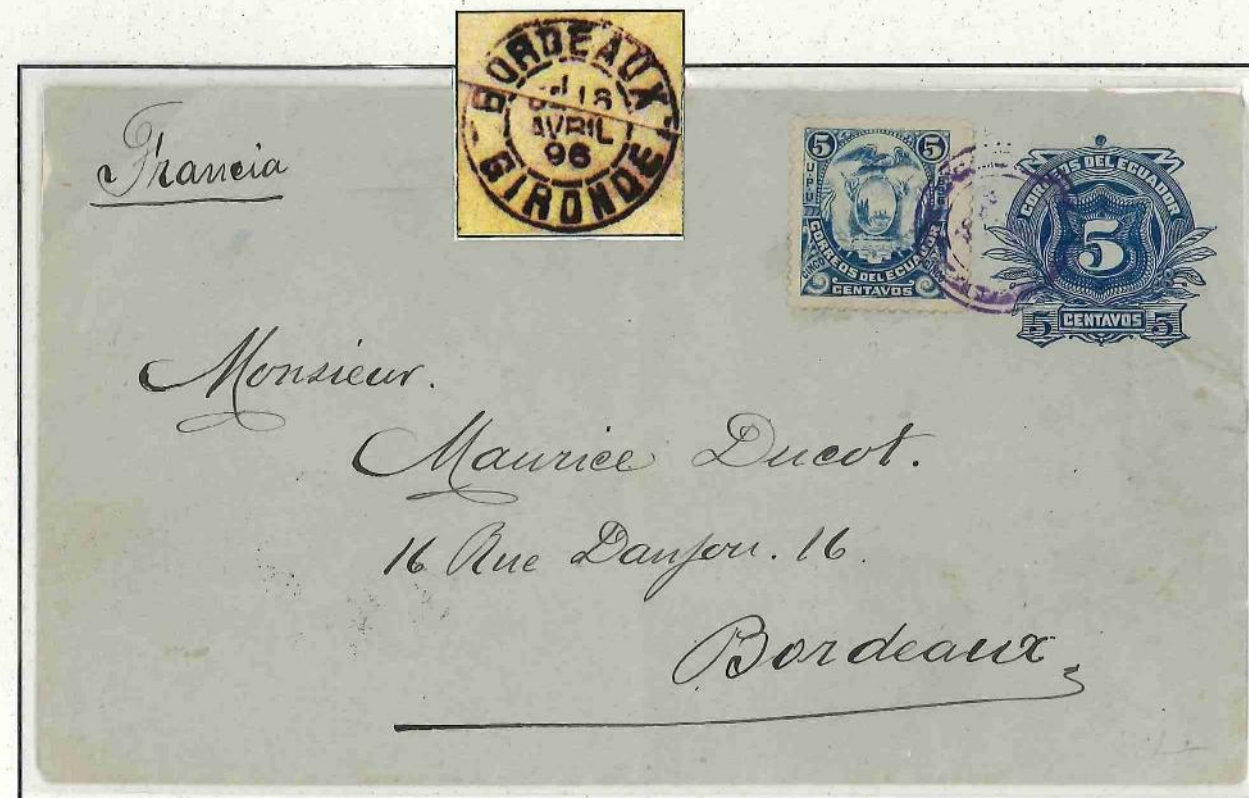 BORDEAUX
16
AVRIL
96
GIRONDE
Francia
5 5
UPU
CORREOS DEL ECUADOR
CINCO CINCO
CENTAVOS
CORREOS DEL ECUADOR
5
5 CENTAVOS 5
Monsieur.
Maurice Ducot.
16 Rue Danjou. 16.
Bordeaux